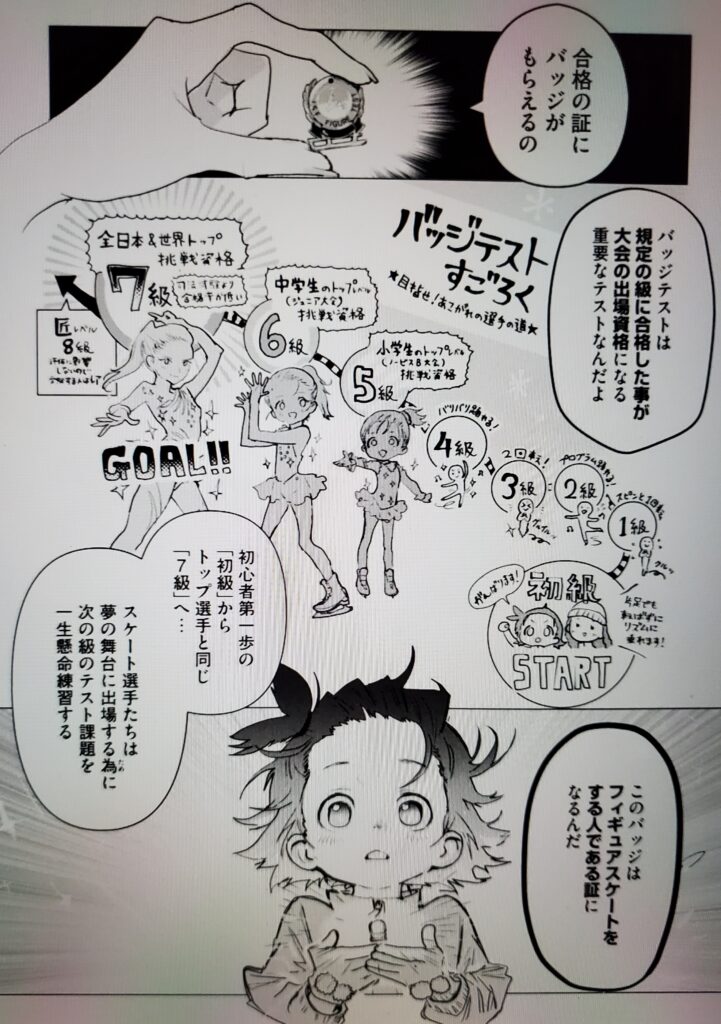 合格の証に
バッジが
もらえるの
FIGURE
バッジテストは
規定の級に合格した事が
大会の出場資格になる
重要なテストなんだよ
バッジテスト
すごろく
★目指せ!あこがれの選手の道★
初級
START
がんばります!
片足でも
リズムに
乗れます!
1級
スピンと1回転
クルッ
2級
プログラム踊れる!
3級
2回転!
グルグルッ
4級
バリバリ踊れる!
5級
小学生のトップレベル
(ノービスB大会)
挑戦資格
6級
中学生のトップレベル
(ジュニア大会)
挑戦資格
7級
全日本&世界トップ
挑戦資格
合格率が低い
匠レベル
8級
GOAL!!
初心者第一歩の
「初級」から
トップ選手と同じ
「7級」へ…
スケート選手たちは
夢の舞台に出場する為に
ため
次の級のテスト課題を
一生懸命練習する
このバッジは
フィギュアスケートを
する人である証に
なるんだ